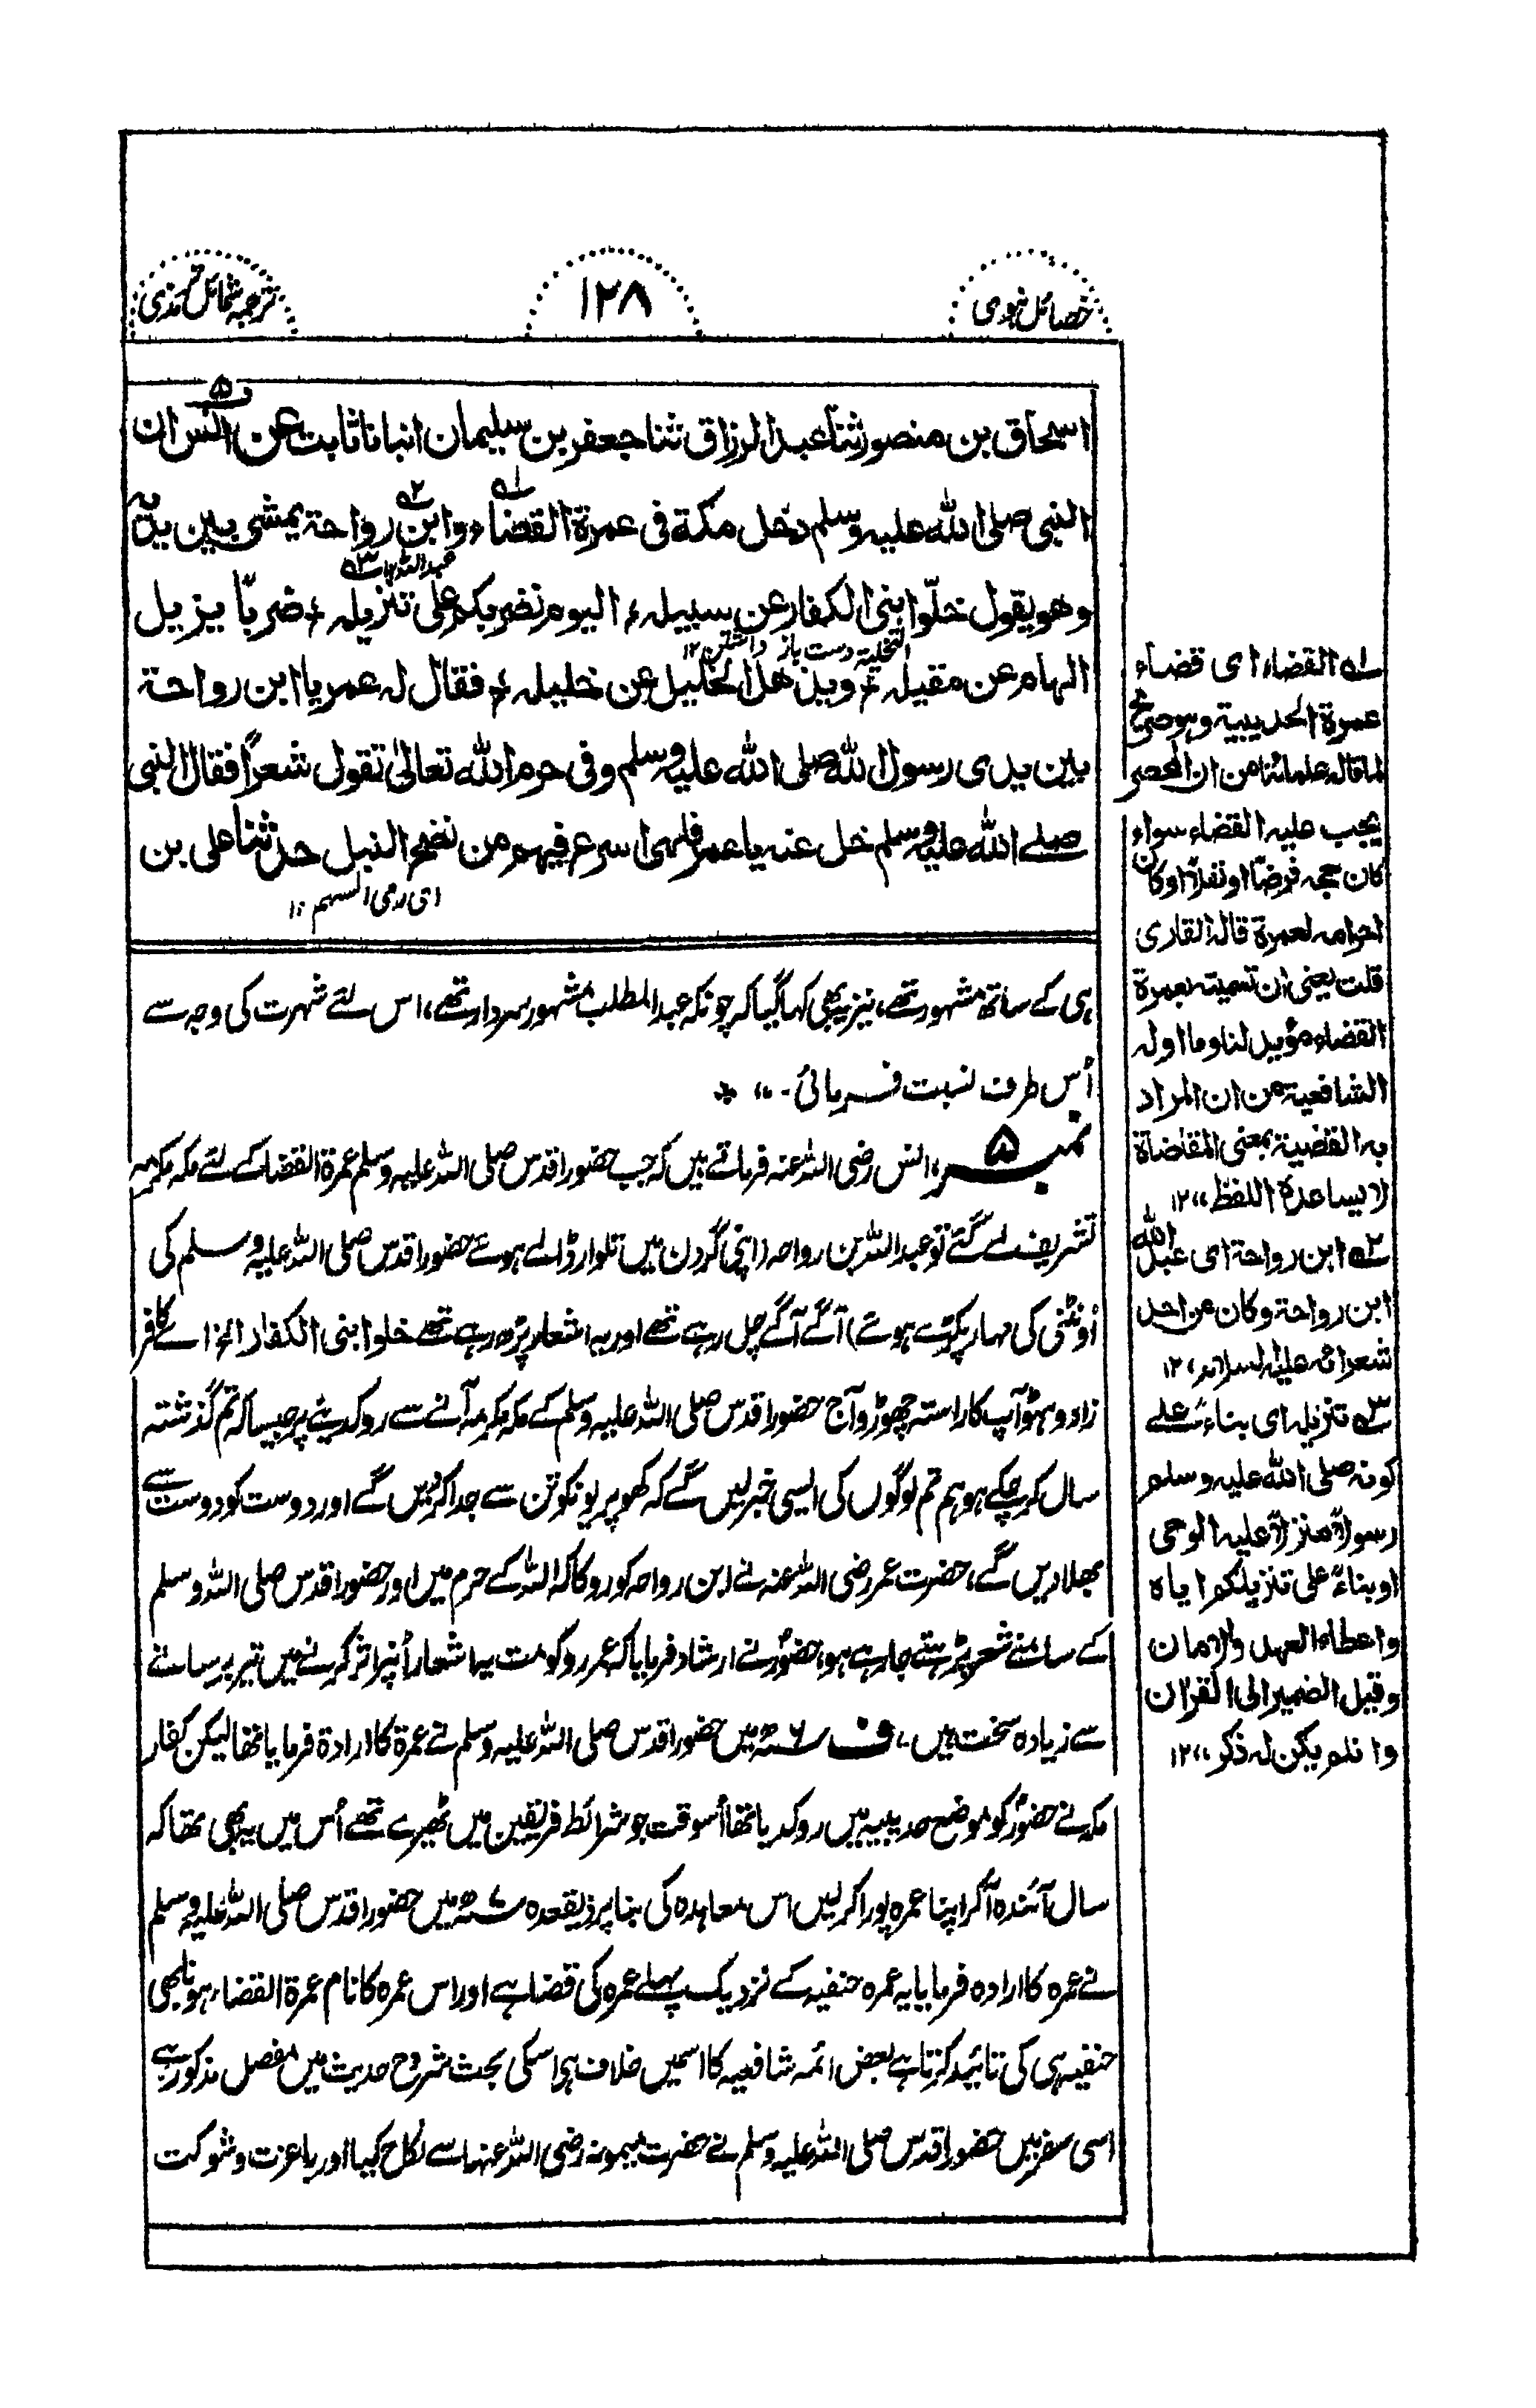 خصائل نبوی
١٢٨
ترجمہ شمائل ترمذی
اسحاق بن منصور ثنا عبد الرزاق ثنا جعفر بن سلیمان انبانا ثابت عن انس ان
النبی صلی اللہ علیہ وسلم دخل مکة فی عمرة القضاء وابن رواحة یمشی بین یدیہ
وھو یقول خلّوا بنی الکفار عن سبیلہ ۽ الیوم نضربکم علی تنزیلہ ۽ ضربًا یزیل
الھام عن مقیلہ ۽ ویذھل الخلیل عن خلیلہ ۽ فقال لہ عمر یا ابن رواحة
بین یدی رسول اللہ صلی اللہ علیہ وسلم وفی حرم اللہ تعالیٰ تقول شعرًا فقال النبی
صلے اللہ علیہ وسلم خل عنہ یا عمر فلھی اسرع فیھم من نضح النبل حدثنا علی بن
ای رمی السہم ١٢
ہی کے ساتھ مشہور تھے، نیز یہ بھی کہا گیا کہ چونکہ عبد المطلب مشہور سردار تھے، اس لئے شہرت کی وجہ سے
اُس طرف نسبت فرمائی۔،،
نمبر ۵، انس رضی اللہ عنہ فرماتے ہیں کہ جب حضور اقدس صلی اللہ علیہ وسلم عمرۃ القضا کے لئے مکہ مکرمہ
تشریف لے گئے تو عبد اللہ بن رواحہ (اپنی گردن میں تلوار ڈالے ہوئے حضور اقدس صلی اللہ علیہ وسلم کی
اُونٹنی کی مہار پکڑے ہوئے) آگے آگے چل رہے تھے اور یہ اشعار پڑھ رہے تھے خلوا بنی الکفار الخ اے کافر
زادو ہٹو آپ کا راستہ چھوڑو آج حضور اقدس صلی اللہ علیہ وسلم کے مکہ مکرمہ آنے سے روکدینے پر جیسا کہ تم گذشتہ
سال کر چکے ہو ہم تم لوگوں کی ایسی خبر لیں گے کہ کھوپریونکو تن سے جدا کر دیں گے اور دوست کو دوست سے
بھلا دیں گے، حضرت عمر رضی اللہ عنہ نے ابن رواحہ کو روکا کہ اللہ کے حرم میں اور حضور اقدس صلی اللہ وسلم
کے سامنے شعر پڑہتے جا رہے ہو، حضورؐ نے ارشاد فرمایا کہ عمر روکو مت یہ اشعار اُنپر اثر کرنے میں تیر برسانے
سے زیادہ سخت ہیں۔، ف ۶ھ میں حضور اقدس صلی اللہ علیہ وسلم نے عمرۃ کا ارادۃ فرمایا تھا لیکن کفار
مکہ نے حضورؐ کو موضع حدیبیہ میں روکدیا تھا اُسوقت جو شرائط فریقین میں ٹھیرے تھے اُس میں یہ بھی تھا کہ
سال آئندہ آکر اپنا عمرہ پورا کر لیں اس معاہدہ کی بنا پر ذیقعدہ ۷ھ میں حضور اقدس صلی اللہ علیہ وسلم
نے عمرہ کا ارادہ فرمایا یہ عمرہ حنفیہ کے نزدیک پہلے عمرہ کی قضا ہے اور اس عمرہ کا نام عمرۃ القضاء ہونا بھی
حنفیہ ہی کی تائید کرتا ہے بعض ائمہ شافعیہ کا اسمیں خلاف ہی اسکی بحث شروح حدیث میں مفصل مذکور ہے
اسی سفر میں حضور اقدس صلی اللہ علیہ وسلم نے حضرت میمونہ رضی اللہ عنہا سے نکاح کیا اور باعزت و شوکت
لہ القضاء ای قضاء
عمرة الحدیبیة وھو صریح
لما قالہ علمائنا من ان المحصر
یجب علیہ القضاء سواء
کان حجہ فرضًا او نفلًا او کان
احرامہ لعمرة قالہ القاری
قلت یعنی ان تسمیتہ بعمرة
القضاء مؤید لنا وما اولہ
الشافعیة من ان المراد
بہ القضیة بمعنی المقاضاة
لا یساعدہ اللفظ،،١٢
٢ہ ابن رواحة ای عبد اللہ
ابن رواحة وکان من احد
شعرائہ علیہ السلام،١٢
٣ہ تنزیلہ ای بناءً علے
کونہ صلی اللہ علیہ وسلم
رسولًا منزلًا علیہ الوحی
او بناءً علی تنزیلکم ایاہ
واعطاء العھد والامان
وقیل الضمیر الی القرآن
وان لم یکن لہ ذکر،،١٢